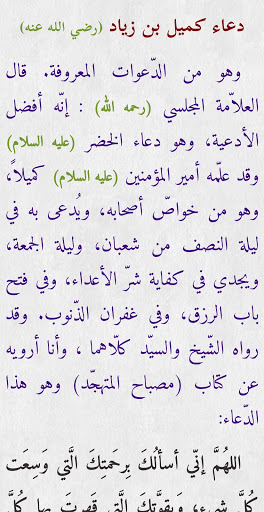 دعاء كميل بن زياد (رضي الله عنه)
وهو من الدّعوات المعروفة. قال
العلاّمة المجلسي (رحمه الله) : إنّه أفضل
الأدعية، وهو دعاء الخضر (عليه السلام)
وقد علّمه أمير المؤمنين (عليه السلام) كميلاً،
وهو من خواصّ أصحابه، ويُدعى به في
ليلة النصف من شعبان، وليلة الجمعة،
ويجدي في كفاية شرّ الأعداء، وفي فتح
باب الرزق، وفي غفران الذّنوب. وقد
رواه الشّيخ والسيّد كلاهما ، وأنا أرويه
عن كتاب (مصباح المتهجّد) وهو هذا
الدّعاء:
اللهُمَّ إنّي أسألُكَ بِرَحمَتِكَ الَّتي وَسِعَت
كُلَّ شَيءٍ، وَبِقوَّتِكَ الَّتي قَهَرتَ بِها كُلَّ